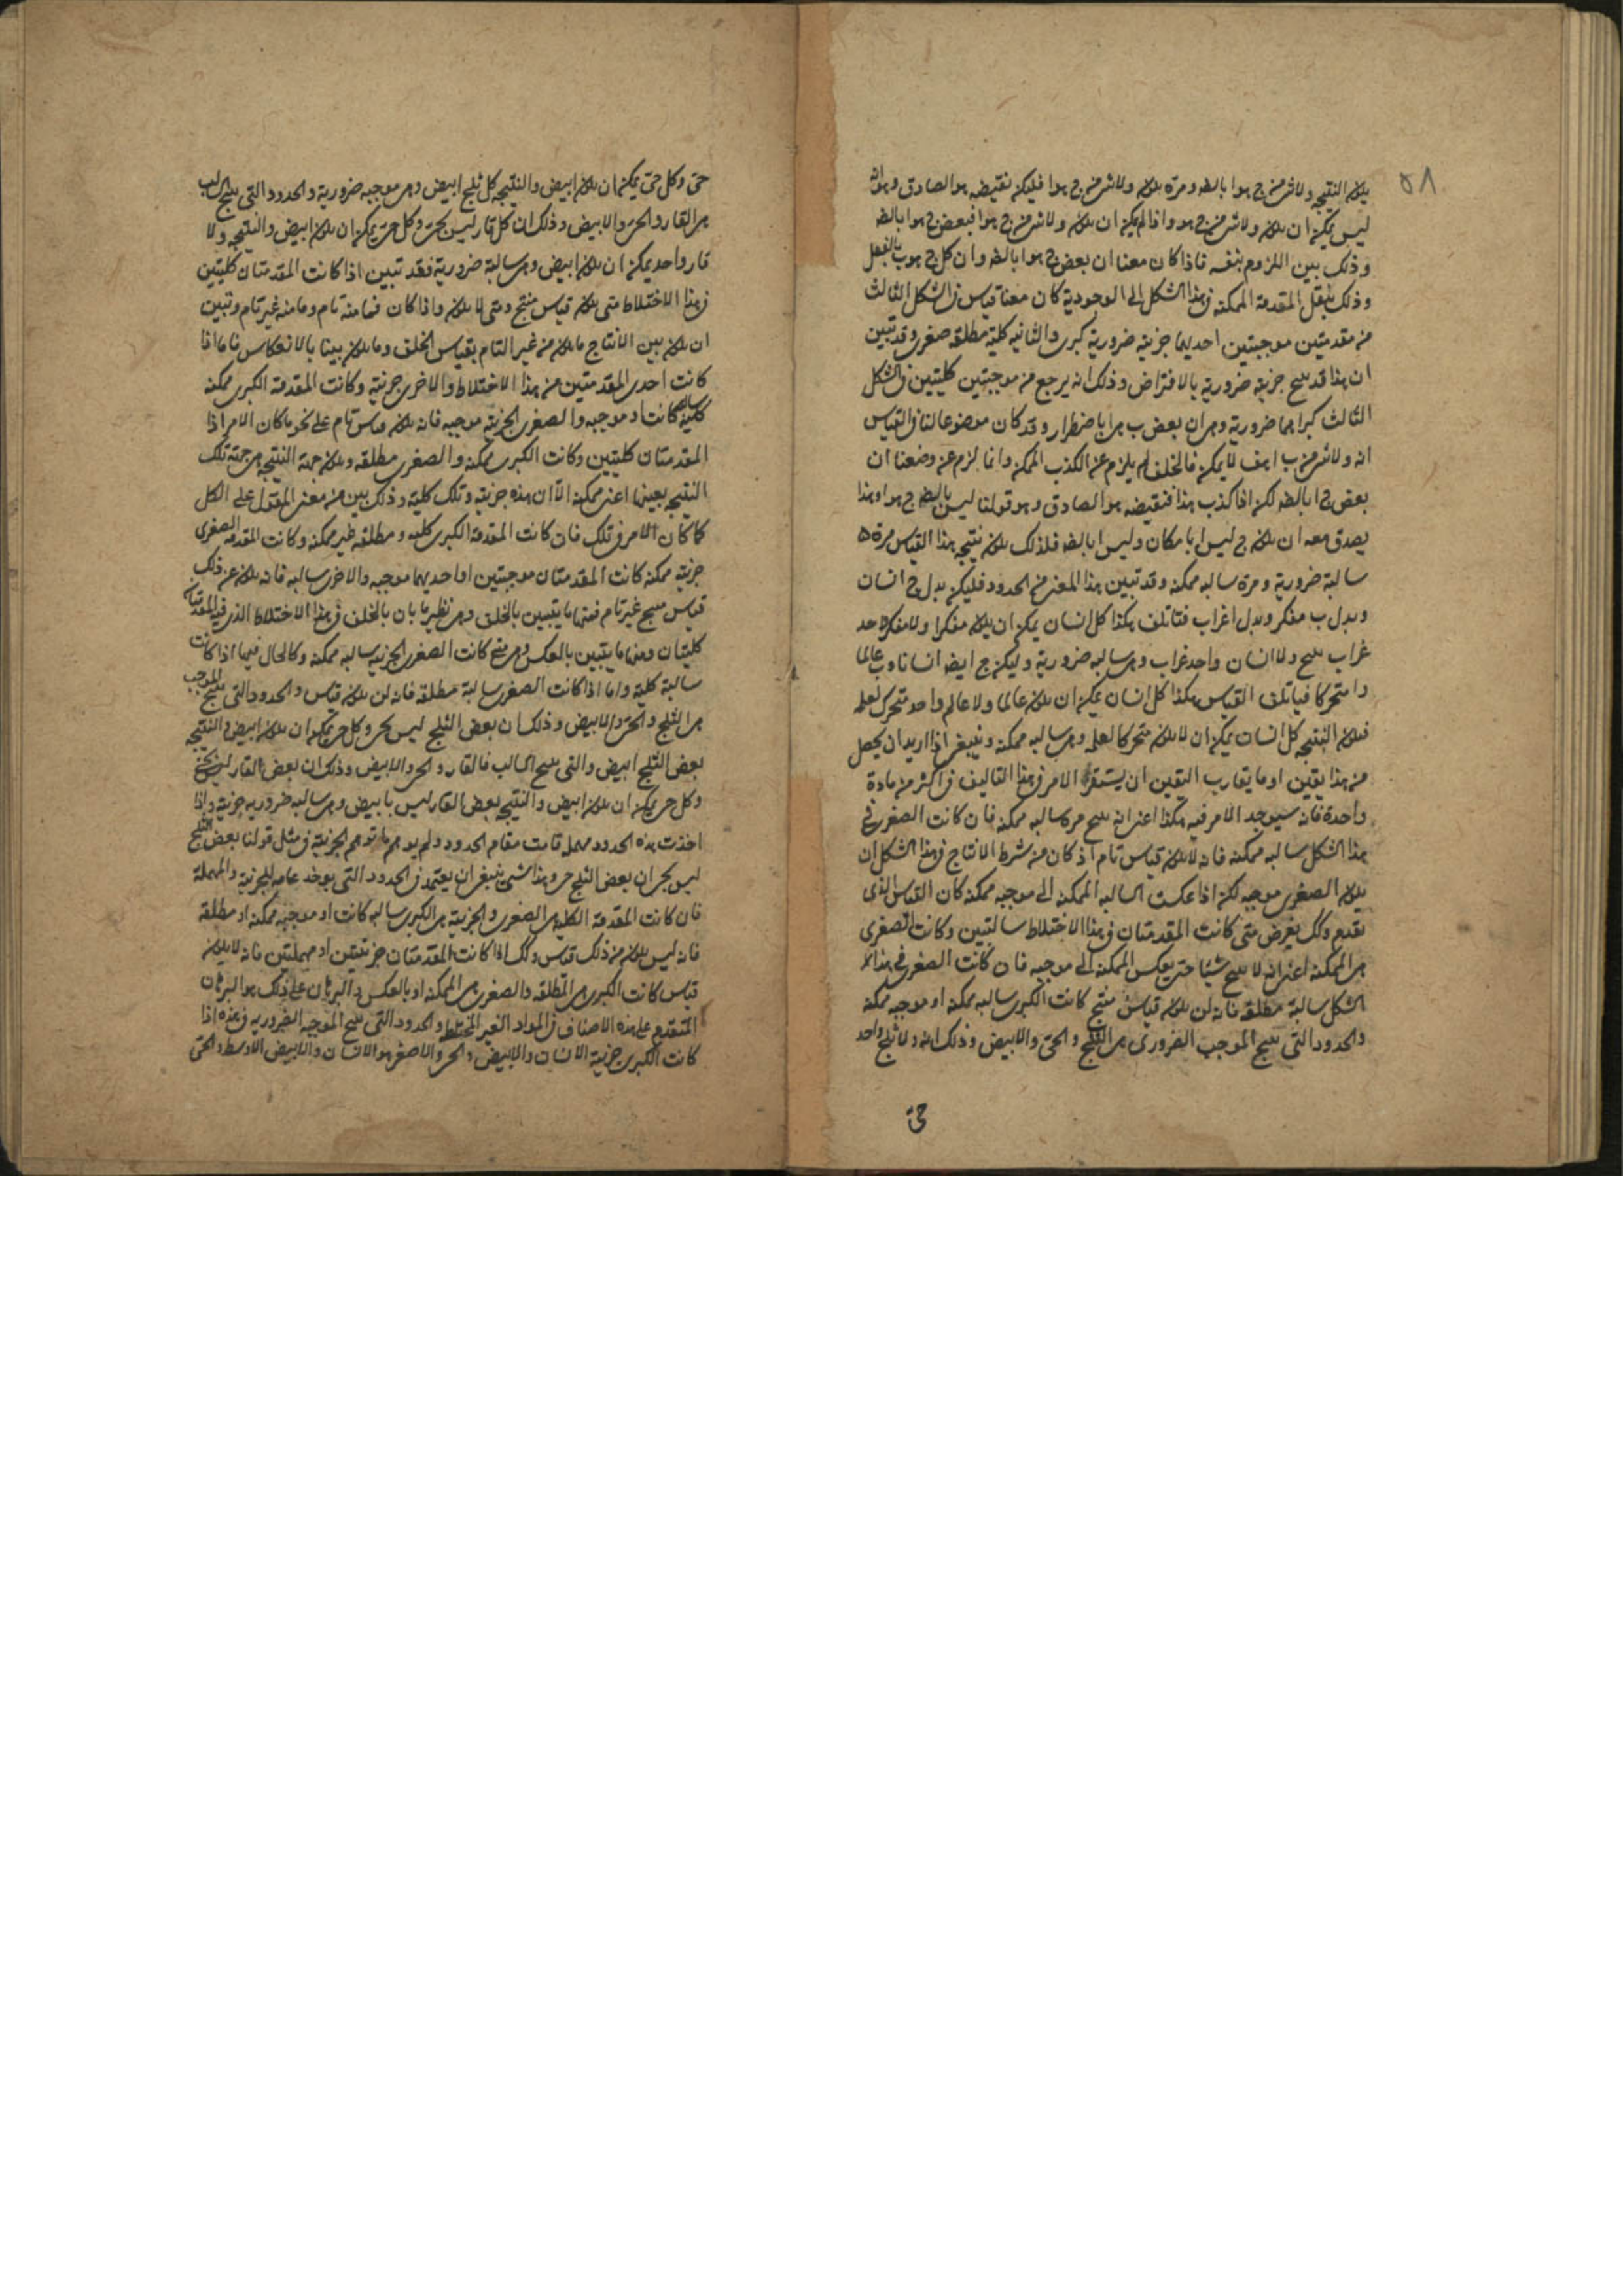 ٥٨
يكون النتيجة ولا شئ من ج هو ا بالضه ومرة يكون ولا شئ من ج هو ا فليكن نقيضه هو الصادق وهو انه
ليس يمكن ان يكون ولا شئ من ج هو واذا لم يمكن ان يكون ولا شئ من ج هو ا فبعض ج هو ا بالضه
وذلك بين اللزوم بنفسه فاذا كان معنا ان بعض ج هو ا بالضه وان كل ج هو ب بالفعل
وذلك بنقل المقدمة الممكنه في هذا الشكل الى الوجودية كان معنا قياس في الشكل الثالث
من مقدمتين موجبتين احديهما جزئية ضرورية كبرى والثانية كلية مطلقة صغرى وقد تبين
ان هذا قد ينتج جزئية ضرورية بالافتراض وذلك انه يرجع من موجبتين كليتين في الشكل
الثالث كبراهما ضرورية وهى ان بعض ب هى ا باضطرار وقد كان موضوعا لنا في القياس
انه ولا شئ من ب ا هف لا يمكن فالخلف لم يلزم عن الكذب الممكن وانما لزم عن وضعنا ان
بعض ج ا بالضه لكن اذا كذب هذا فنقيضه هو الصادق وهو قولنا ليس بالضه ج هو ا وهذا
يصدق معه ان يكون ج ليس ا بامكان وليس ا بالضه فلذلك يكون نتيجة هذا القياس مرة
سالبة ضرورية ومرة سالبه ممكنه وقد تبين هذا المعنى من الحدود فليكن بدل ج انسان
وبدل ب مفكر وبدل ا غراب فتاتلف هكذا كل انسان يمكن ان يكون مفكرا ولا مفكر واحد
غراب ينتج ولا انسان واحد غراب وهى سالبه ضرورية وليكن ج ايضا انسانا وب عالما
وا متحركا فياتلف القياس هكذا كل انسان يمكن ان يكون عالما ولا عالم واحد متحرك لعله
فيكون النتيجه كل انسان يمكن ان لا يكون متحركا لعله وهى سالبه ممكنه وينبغى اذا اريد ان يحصل
من هذا يقين او ما يقارب اليقين ان يستقرأ الامر في هذا التاليف في اكثر من مادة
واحدة فانه سيوجد الامر فيه هكذا اعنى انه ينتج مرة سالبه ممكنه فان كانت الصغرى في
هذا الشكل سالبه ممكنه فانه لا يكون قياس تام اذ كان من شرط الانتاج في هذا الشكل ان
يكون الصغرى موجبه لكن اذا عكست السالبه الممكنه الى موجبه ممكنه كان القياس الذى
تقدم وكك يعرض متى كانت المقدمتان في هذا الاختلاط سالبتين وكانت الصغرى
هى الممكنه اعنى انه لا ينتج شيئا حتى يعكس الممكنه الى موجبه فان كانت الصغرى في هذا
الشكل سالبة مطلقه فانه لن يكون قياس منتج كانت الكبرى سالبه ممكنه او موجبه ممكنه
والحدود التى ينتج الموجب الضرورى هى الثلج والحى والابيض وذلك انه ولا ثلج واحد
حى
حى وكل حى يمكن ان يكون ابيض والنتيجه كل ثلج ابيض وهى موجبه ضرورية والحدود التى ينتج السالب
هى القار والحى والابيض وذلك ان كل قار ليس بحى وكل حى يمكن ان يكون ابيض والنتيجه ولا
قار واحد يمكن ان يكون ابيض وهى سالبة ضرورية فقد تبين اذا كانت المقدمتان كليتين
في هذا الاختلاط متى يكون قياس منتج ومتى لا يكون واذا كان فما منه تام وما منه غير تام وتبين
ان يكون بين الانتاج ما يكون من غير التام بقياس الخلف وما يكون بينا بالانعكاس فاما اذا
كانت احدى المقدمتين من هذا الاختلاط والاخرى جزئية وكانت المقدمة الكبرى ممكنه
كلية سالبه كانت او موجبه والصغرى الجزئية موجبه فانه يكون قياس تام على نحو ما كان الامر اذا
المقدمتان كليتين وكانت الكبرى ممكنه والصغرى مطلقه ويكون جهة النتيجه هى جهة تلك
النتيجه بعينها اعنى ممكنه الا ان هذه جزئية وتلك كلية وذلك بين من معنى المقول على الكل
كما كان الامر في تلك فان كانت المقدمة الكبرى كلية ومطلقه غير ممكنه وكانت المقدمه الصغرى
جزئية ممكنه كانت المقدمتان موجبتين او احديهما موجبه والاخرى سالبه فانه يكون عن ذلك
قياس منتج غير تام فمنها ما يتبين بالخلف وهى نظير ما بان بالخلف في هذا الاختلاط الذى فيه المقدمتان
كليتان ومنها ما يتبين بالعكس وهى متى كانت الصغرى الجزئيه سالبه ممكنه وكالحال فيما اذا كانت
سالبة كلية واما اذا كانت الصغرى سالبة مطلقه فانه لن يكون قياس والحدود التى ينتج الموجب
هى الثلج والحى والابيض وذلك ان بعض الثلج ليس بحى وكل حى يمكن ان يكون ابيض والنتيجه
بعض الثلج ابيض والتى ينتج السالب فالقار والحى والابيض وذلك ان بعض القار ليس بحى
وكل حى يمكن ان يكون ابيض والنتيجه بعض القار ليس بابيض وهى سالبه ضروريه جزئية واذا
اخذت هذه الحدود مهمله قامت مقام الحدود ولم يوهم ما توهم الجزئية في مثل قولنا بعض الثلج
ليس بحى ان بعض الثلج حى وهذا شئ ينبغى ان يعتمد في الحدود التى يوخذ عامه للجزئية والمهملة
فان كانت المقدمة الكليه هى الصغرى والجزئية هى الكبرى سالبه كانت او موجبه ممكنه او مطلقة
فانه ليس يكون من ذلك قياس وكك اذا كانت المقدمتان جزئيتين او مهملتين فانه لا يكون
قياس كانت الكبرى هى المطلقه والصغرى هى الممكنه او بالعكس والبرهان على ذلك هو البرهان
المتقدم على هذه الاصناف في المواد الغير المختلطه والحدود التى ينتج الموجبه الضروريه في هذه اذا
كانت الكبرى جزئية الانسان والابيض والحى والاصغر هو الانسان والابيض الاوسط والحى